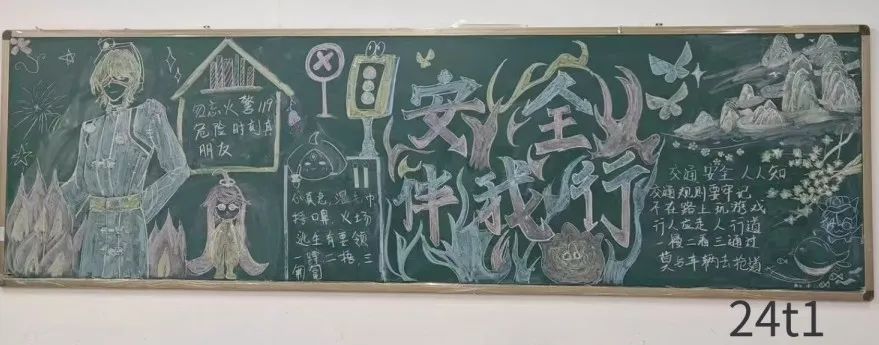 勿忘火警119
危险时刻真
朋友
不真危,湿毛巾
捂口鼻,火场
逃生有要领
一蹲二捂,三
匍匐
安全
伴我行
交通安全人人知
交通规则要牢记
不在路上玩游戏
行人应走人行道
一慢二看三通过
莫与车辆去抢道
24t1